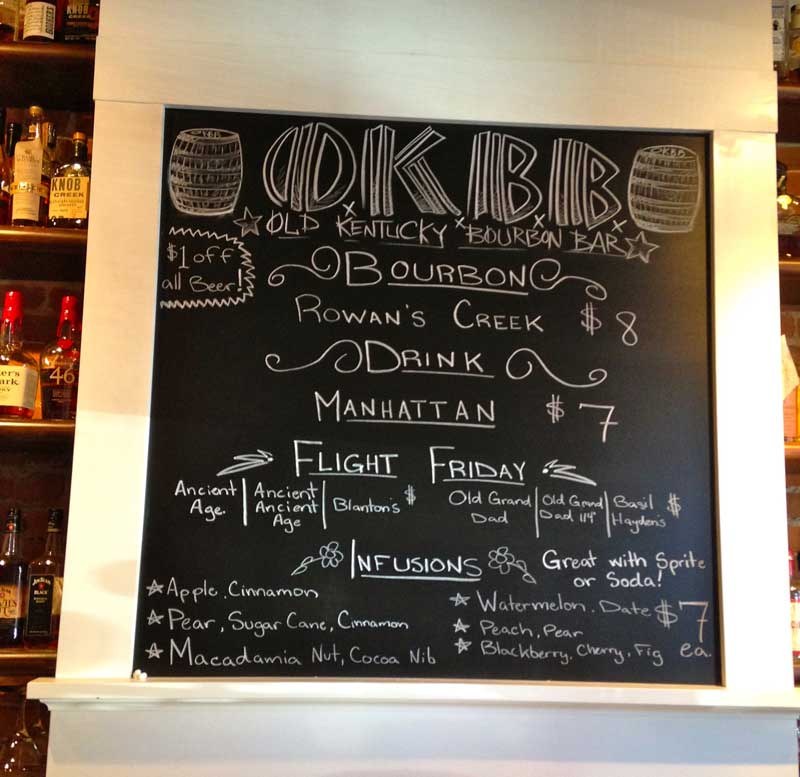 OKBB
OLD KENTUCKY BOURBON BAR
$1 off
all Beer!
BOURBON
ROWAN'S CREEK $8
DRINK
MANHATTAN $7
FLIGHT FRIDAY
Ancient Age. | Ancient Ancient Age | Blanton's $
Old Grand Dad | Old Grand Dad 114 | Basil Hayden's $
INFUSIONS
Great with Sprite
or Soda!
Apple, Cinnamon
Pear, Sugar Cane, Cinnamon
Macadamia Nut, Cocoa Nib
Watermelon, Date
Peach, Pear
Blackberry, Cherry, Fig
$7
ea.
KNOB
CREEK
KNOB
CREEK
46